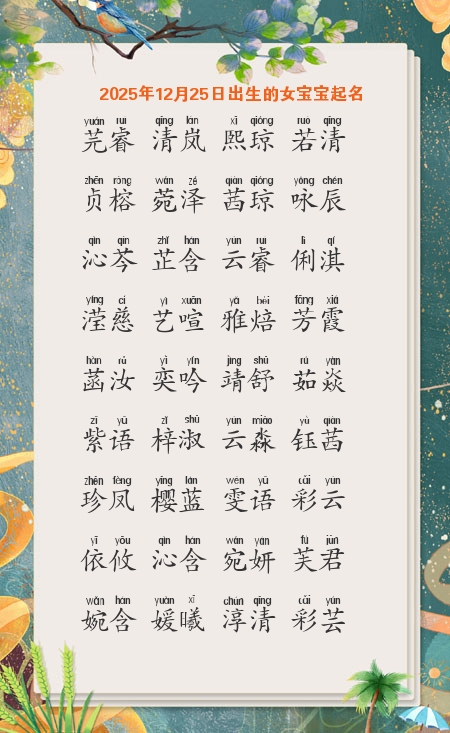 2025年12月25日出生的女宝宝起名
yuán ruì qīng lán xī qióng ruò qīng
芫睿 清岚 熙琼 若清
zhēn róng wǎn zé qiàn qióng yǒng chén
贞榕 菀泽 茜琼 咏辰
qìn qín zhǐ hán yún ruì lì qí
沁芩 芷含 云睿 俐淇
yíng cí yì xuān yǎ bèi fāng xiá
滢慈 艺喧 雅焙 芳霞
hàn rǔ yì yín jìng shū rú yàn
菡汝 奕吟 靖舒 茹焱
zǐ yǔ zǐ shū yún miǎo yù qiàn
紫语 梓淑 云淼 钰茜
zhēn fèng yīng lán wén yǔ cǎi yún
珍凤 樱蓝 雯语 彩云
yī yōu qìn hán wǎn yán fú jūn
依攸 沁含 宛妍 芙君
wǎn hán yuàn xī chún qīng cǎi yún
婉含 媛曦 淳清 彩芸